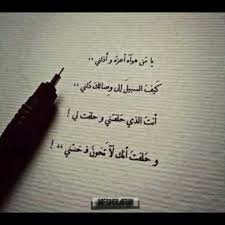 يا مَن هواه أعزه و أذلني ،،
كَيفَ السبيل إلى وصالك دُلني ،،
أنتَ الذي حَلفتَني و حلفت لي !
و حَلفتَ أنك لَا تَخون فـ خنتني ،، !